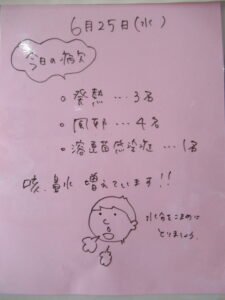 6月25日(水)
今日の病欠
○ 発熱…3名
○ 風邪…4名
○ 溶連菌感染症…1名
咳、鼻水 増えています!!
水分をこまめに
とりましょう。